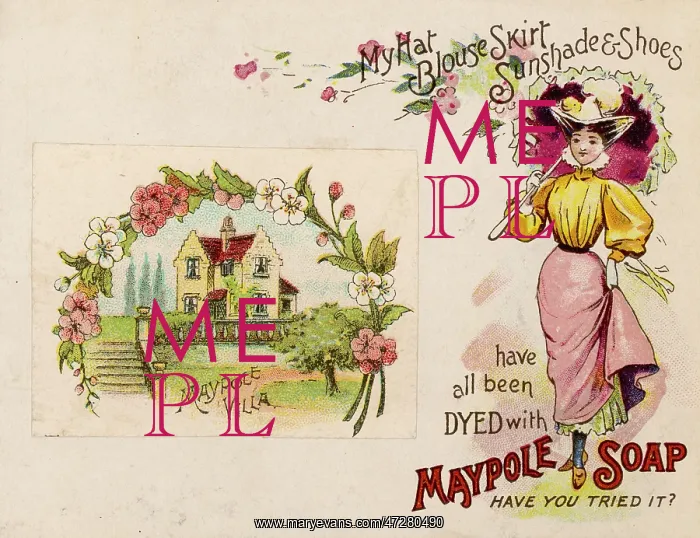 My Hat
Blouse Skirt
Sunshade & Shoes
ME
PL
have
all been
DYED with
MAYPOLE SOAP
HAVE YOU TRIED IT?
ME
PL
MAYPOLE
VILLA
www.maryevans.com/47280490